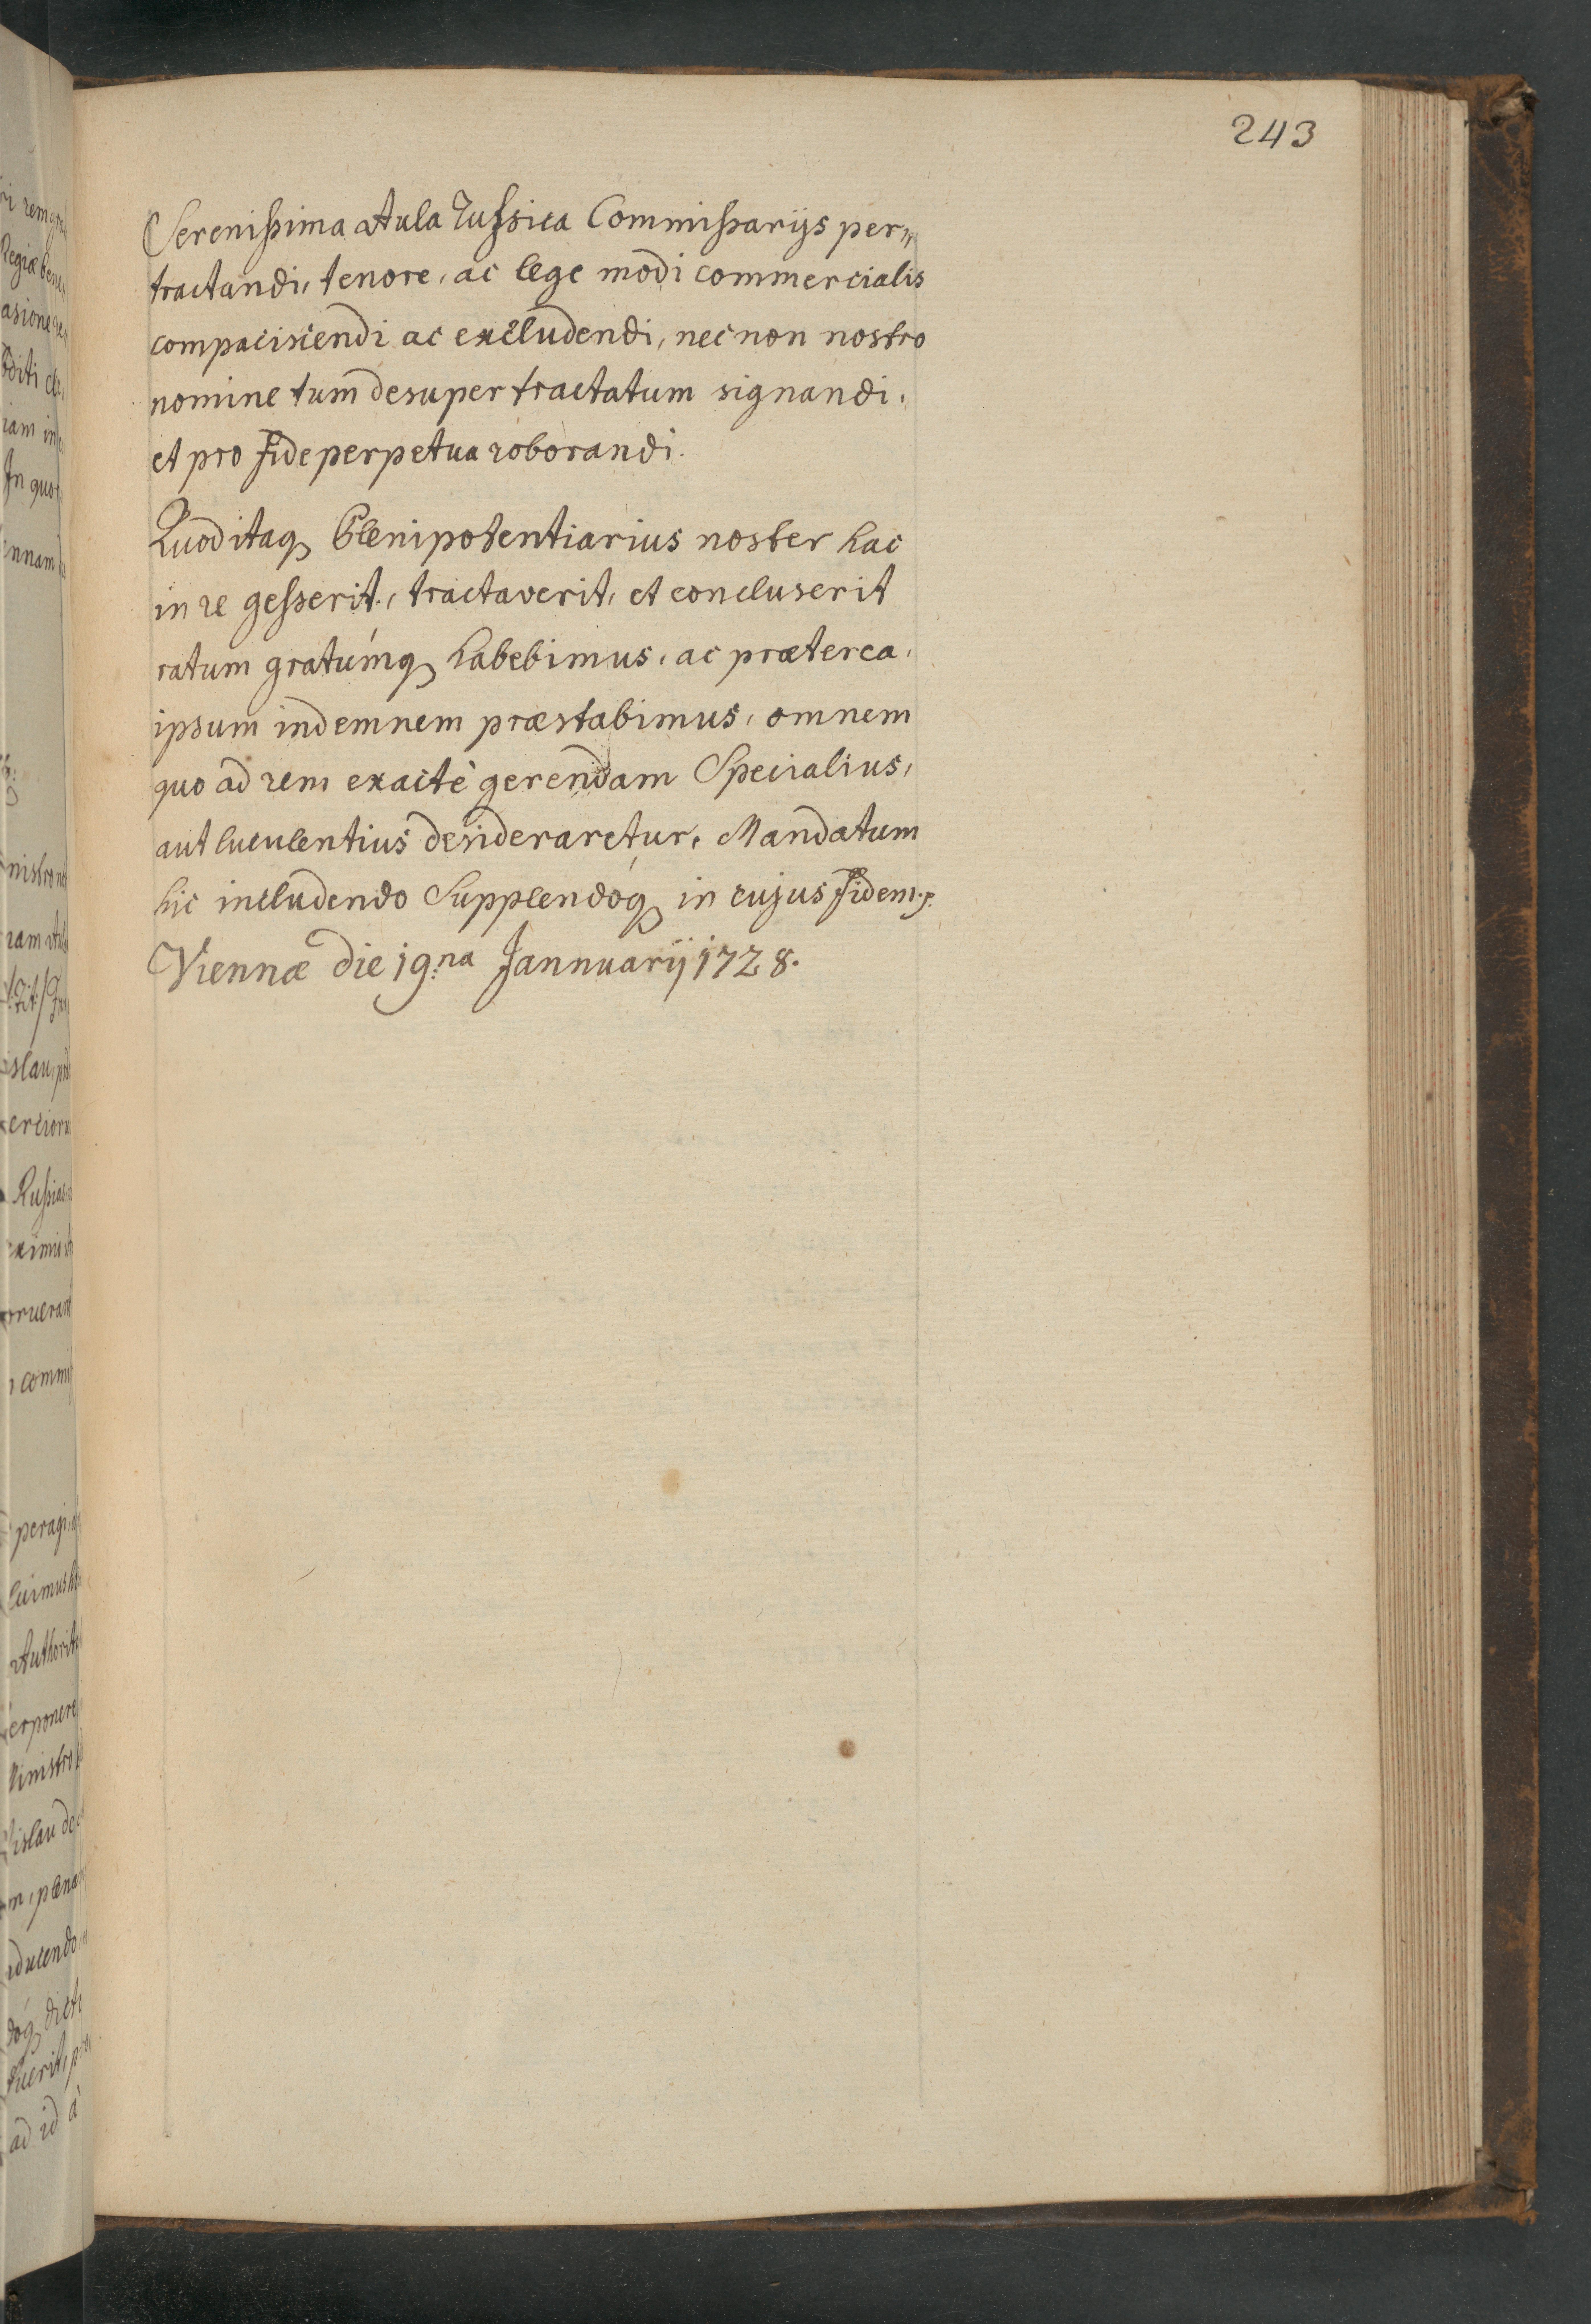 243
Serenissima Aula Russica Commissarijs per„
tractandi, tenore, ac lege modi commercialis
compaciscendi ac excludendi, nec non nostro
nomine tum desuper tractatum signandi,
et pro fide perpetua roborandi.
Quod itaq Plenipotentiarius noster hac
in re gesserit, tractaverit, et concluserit
ratum gratúmq habebimus, ac præterea,
ipsum indemnem præstabimus, omnem
quo ad rem exactè gerendam Specialius,
aut luculentius desideraretur, Mandatum
hic includendo Supplendóq in cujus fidem
Viennæ die 19.na Jannuarij 1728.